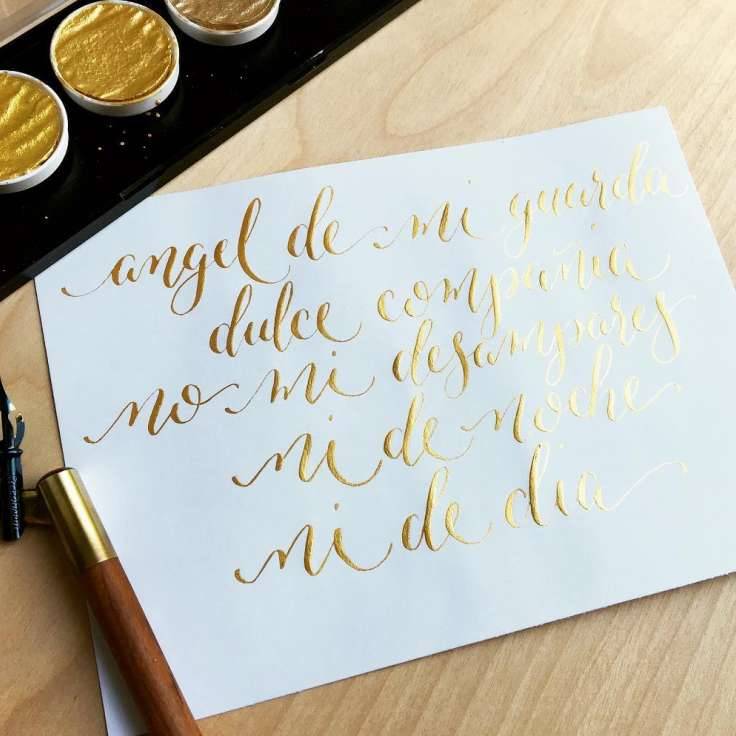 angel de mi guarda
dulce compañia
no mi desampares
ni de noche
ni de dia